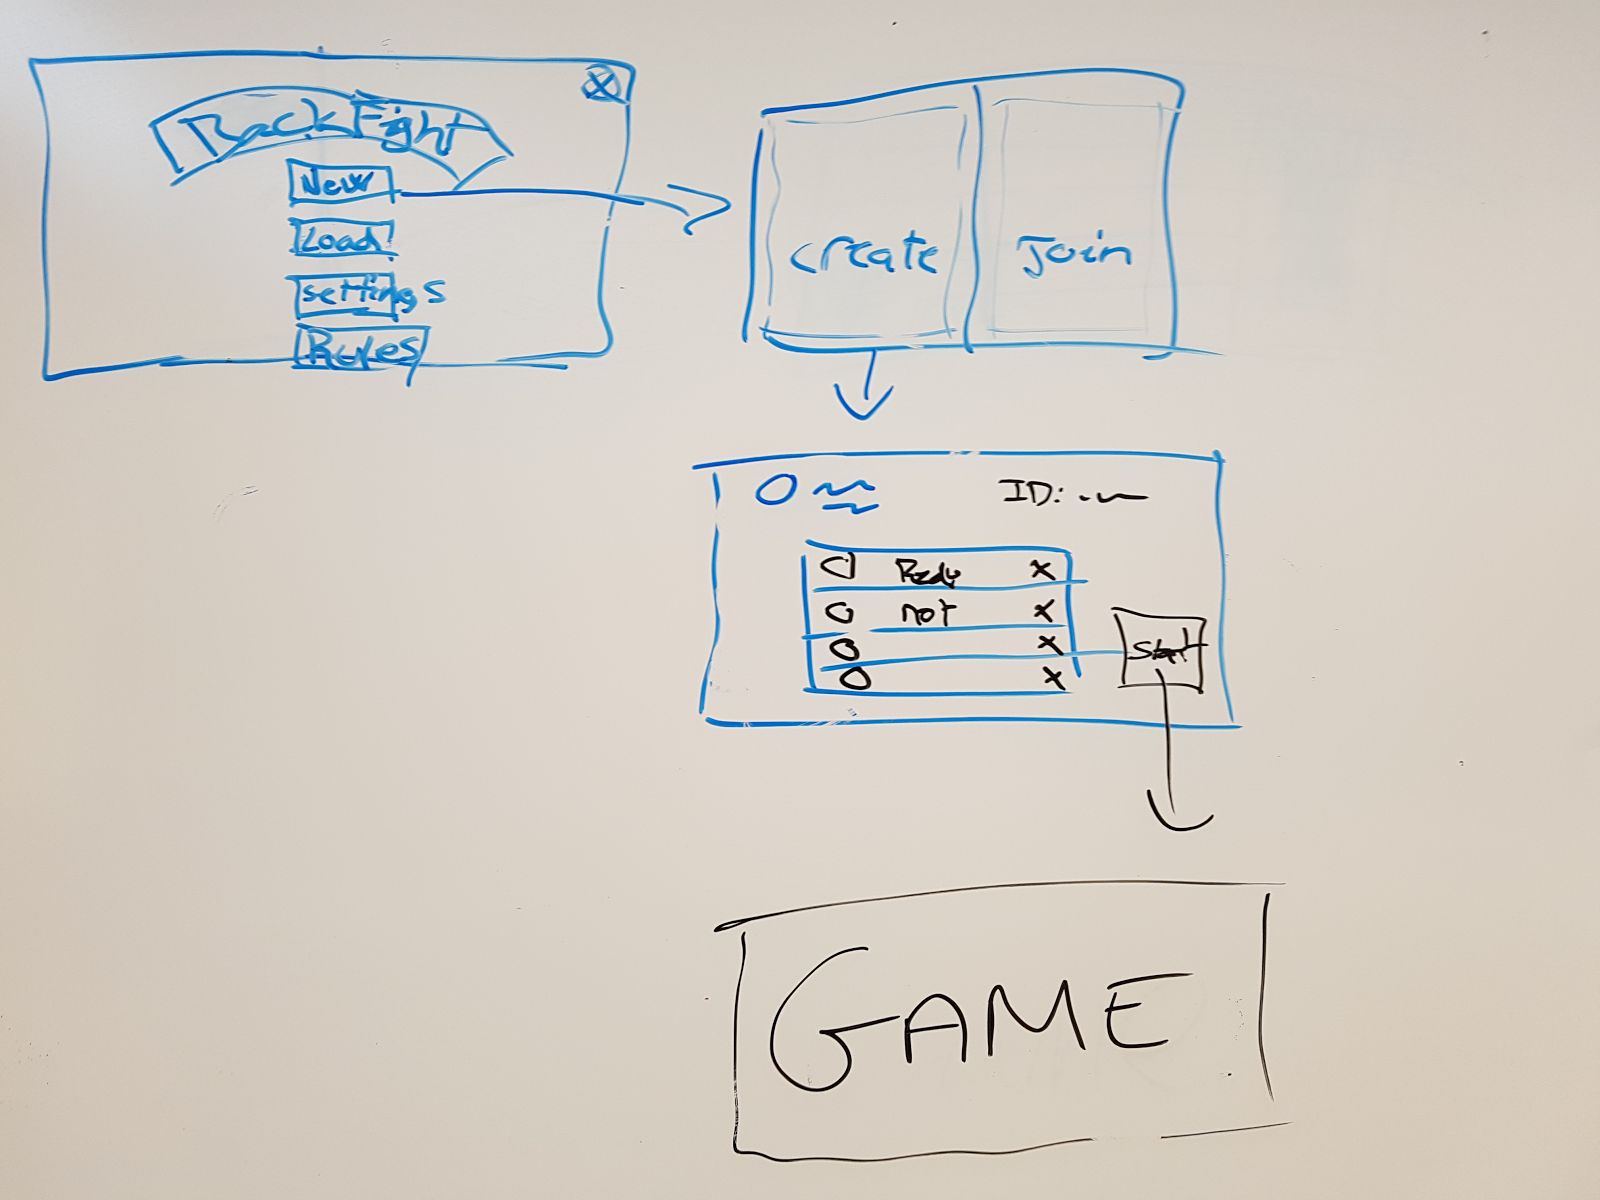 RackFight
New
Load
settings
Rules
create
Join
ID:
Ready X
not X
X
X
Start
GAME